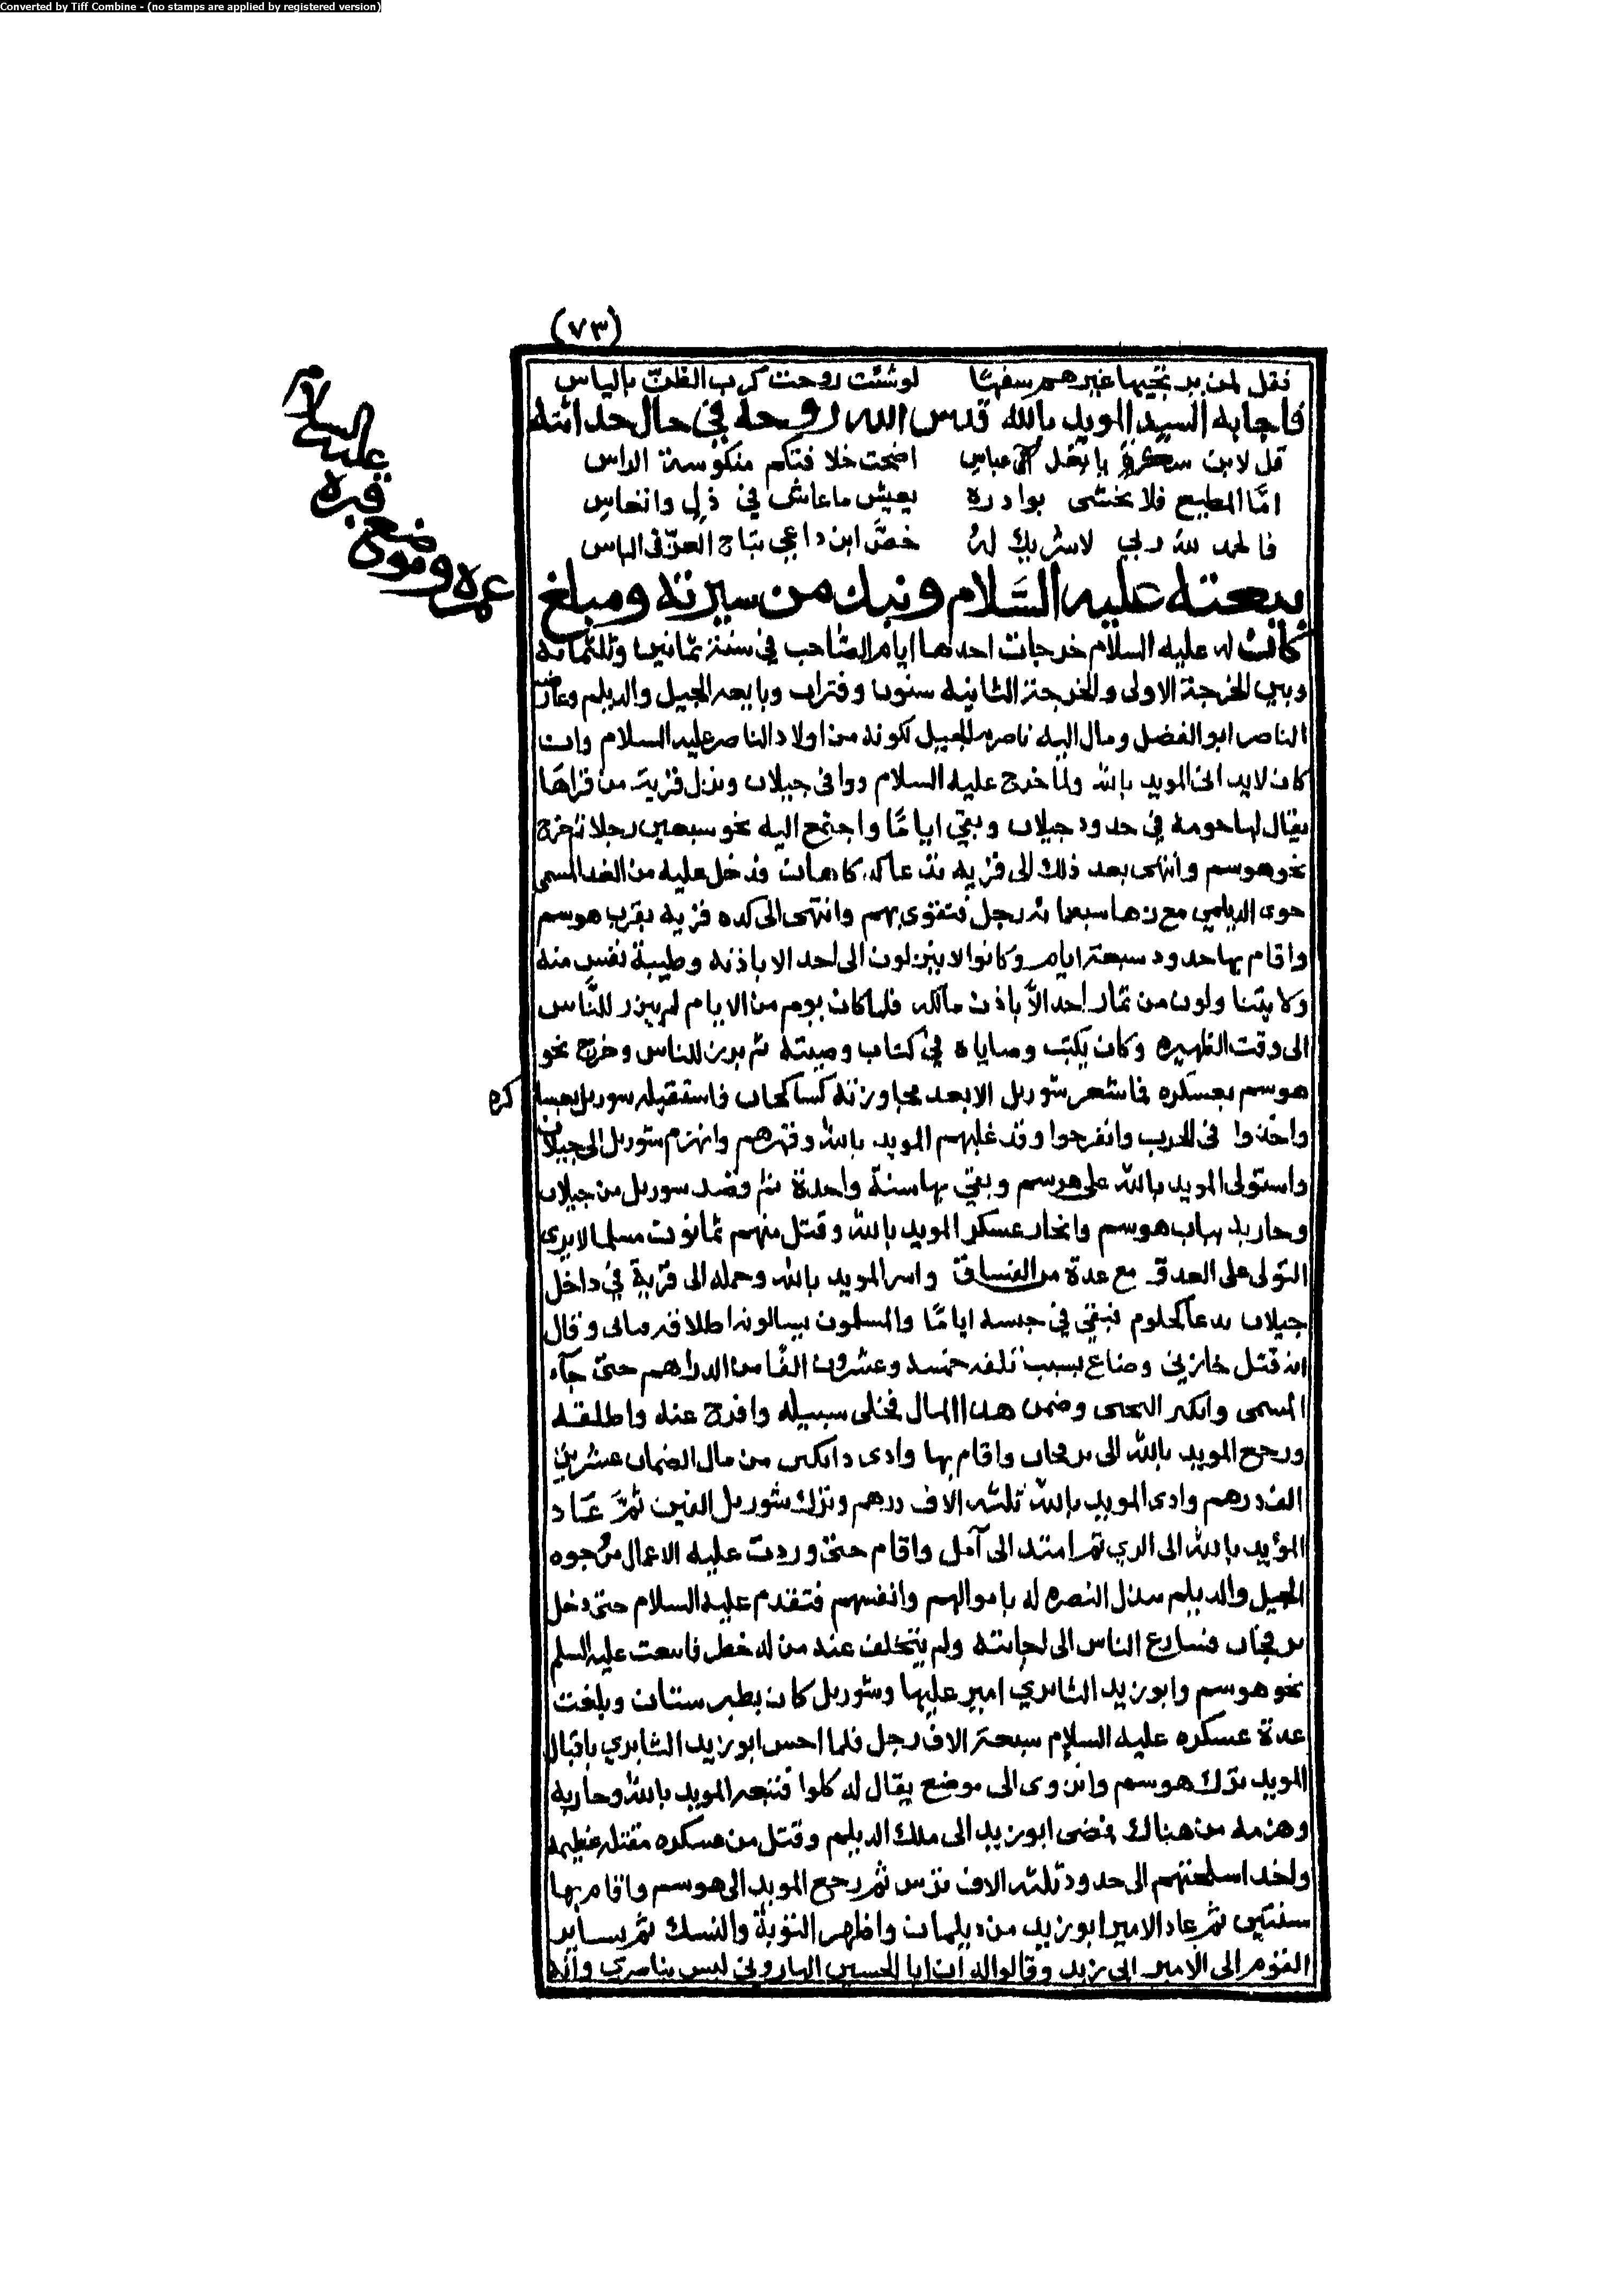 Converted by Tiff Combine - (no stamps are applied by registered version)
(٧٣)
فقل لمن يرتجيها غيرهم سفهًا لو شئت روحت كرب الظنّ بالياس
فاجابه السيد المويد بالله قدس الله روحه في حال حداثته
قل لابن سكرة يا نغل عباس اضحت خلافتكم منكوسة الراس
امّا المطيع فلا تخشى بوادره يعيش ما عاش في ذل واتعاس
فالحمد لله ربي لا شريك لهُ خصّ ابن داعي بتاج العزّ في الناس
بيعته عليه السَّلام ونبذ من سيرته ومبلغ
عمره وموضع قبره عليه السلام
كانت له عليه السلام خرجات احدها ايام الصّاحب في سنة ثمانين وثلثمائه
وبين الخرجة الاولى والخرجة الثانيه سنون وفترات وبايعه الجيل والديلم وعارضه
الناصر ابو الفضل ومال اليه ناصريه الجيل لكونه من اولاد الناصر عليه السلام وان
كان لا يدانى المويد بالله ولما خرج عليه السلام وافى جيلان ونزل قرية من قراها
يقال لها حومه في حدود جيلان وبقي ايامًا واجتمع اليه نحو سبعين رجلا فخرج
نحو هوسم وانتهى بعد ذلك الى قريه تدعا كدكاهان ودخل عليه من الغد المسمى
حوى الديلمي مع زها سبعمائه رجل فتقوى بهم وانتهى الى كده قريه بقرب هوسم
واقام بها حدود سبعة ايام وكانوا لا ينزلون الى احد الا باذنه وطيبة نفس منه
ولا يتناولون من ثمار احد الاّ باذن مالكه فلما كان يوم من الايام لم يبرز للنّاس
الى وقت الظهيره وكان يكتب وصاياه في كتاب وصيته ثم برز للناس وخرج نحو
هوسم بعسكره فما شعر شوزيل الا بعد مجاوزته فاستقبله شوزيل بعساكره
واخذوا في الحرب وانفرجوا وقد غلبهم المويد بالله وقهرهم وانهزم شوزيل الى جيلان
واستولى المويد بالله على هوسم وبقي بها سنة واحدة ثم قصد شوزيل من جيلان
وحاربه بباب هوسم وانحاز عسكر المويد بالله وقتل منهم ثمانون مسلما لا يرى
التولى على العدو مع عدة من الفساق واسر المويد بالله وحمله الى قرية في داخل
جيلان فبقي في حبسه ايامًا والمسلمون يسالونه اطلاقه فابى وقال
انه قتل خازني وضاع بسبب تلفه خمسه وعشرون الفًا من الدراهم حتى جآء
المسمى وضمن هذا المال فخلى سبيله وافرج عنه واطلقه
ورجع المويد بالله الى واقام بها وادى من مال الضمان عشرين
الف درهم وادى المويد بالله ثلثه الاف درهم وترك شوزيل الفين ثمّ عَاد
المؤيد بالله الى الري ثم امتد الى آمل واقام حتى وردت عليه من وجوه
الجيل والديلم ببذل النصره له باموالهم وانفسهم فتقدم عليه السلام حتى دخل
فتسارع الناس الى اجابته ولم يتخلف عنه من له خطر فانبعث عليه السلم
نحو هوسم وابو زيد الثائري امير عليها وشوزيل كان بطبرستان وبلغت
عدة عسكره عليه السلام سبعة الاف رجل فلما احس ابو زيد الثايري باقبال
المويد ترك هوسم وانزوى الى موضع يقال له كلوا فتبعه المويد بالله وحاربه
وهزمه من هناك فمضى ابو زيد الى ملك الديلم وقتل من عسكره مقتله عظيمه
واخذ اسلحتهم الى حدود ثلثه الاف ترس ثم رجع المويد الى هوسم واقام بها
سنتين ثم عاد الامير ابو زيد من ديلمان واظهر التوبة والنسك ثم
القوم الى الامير ابي زيد وقالوا له ان ابا الحسين الهاروني ليس بناصري وانه